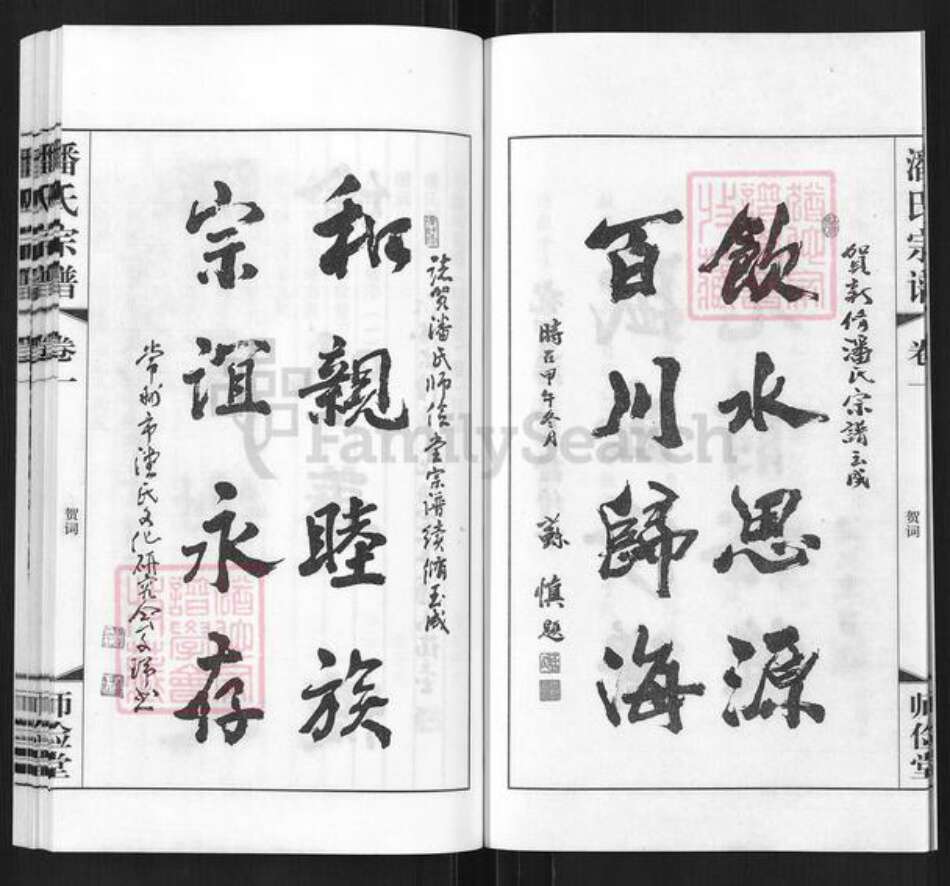 潘氏宗谱 卷一
贺词
师俭堂
賀新修潘氏宗譜玉成
飲水思源
百川歸海
時在甲午冬月
蘇慎題
恭贺潘氏师俭堂宗谱续修玉成
和親睦族
宗誼永存
常州市潘氏文化研究会
潘氏宗谱 卷一
贺词
师俭堂
FamilySearch